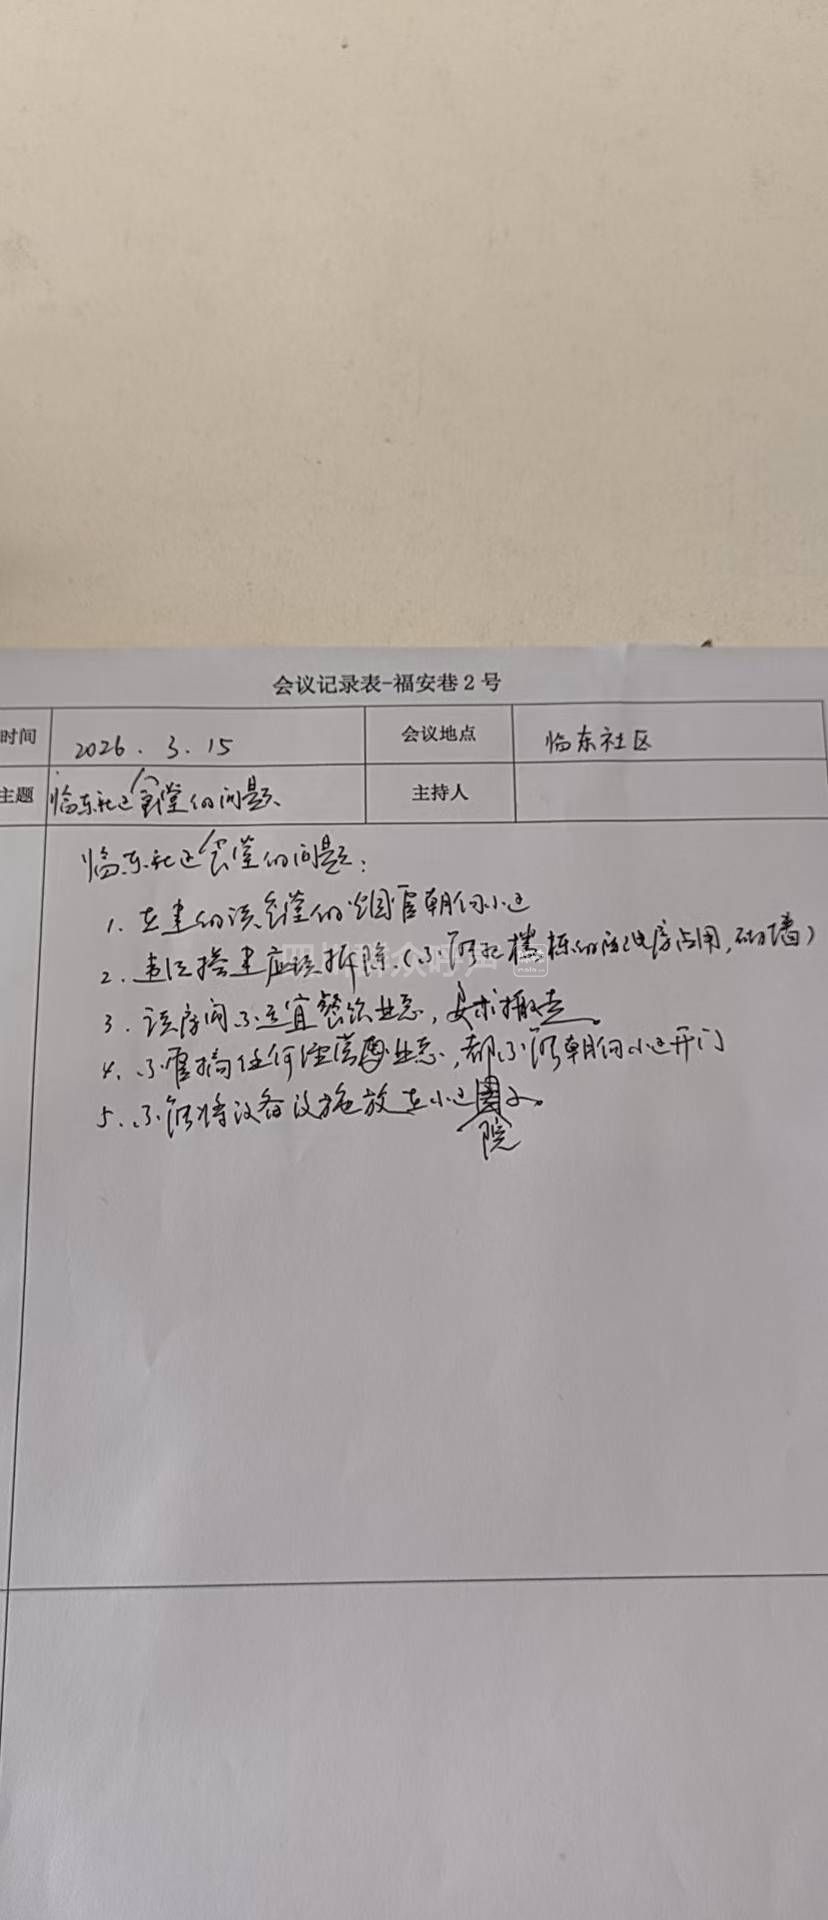 会议记录表-福安巷2号
时间 2026.3.15 会议地点 临东社区
主题 临东社区食堂的问题、 主持人
临东社区食堂的问题:
1. 在建的该食堂的烟管朝向小区
2. 违法搭建应该拆除(不得把楼栋的房占用,砌墙)
3. 该房间不适宜餐饮业态,要求搬走。
4. 不管搞任何经营业态,都不得朝向小区开门
5. 不得将设备设施放在小区
院
四川群众呼声